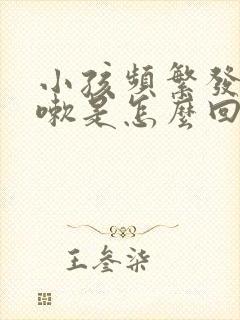 小孩頻繁發
嗽是怎麼回
王參柒